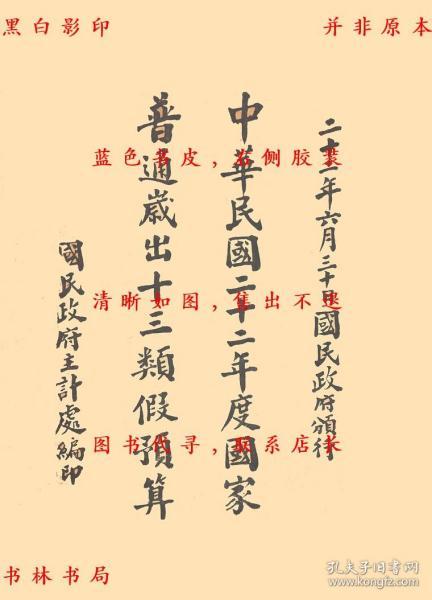 黑白影印
并非原本
二十二年六月三十日國民政府頒行
中華民國二十二年度國家
普通歲出十三類假預算
國民政府主計處編印
蓝色书皮，右侧胶装
清晰如图，售出不退
图书代寻，联系店长
书林书局
孔夫子旧书网